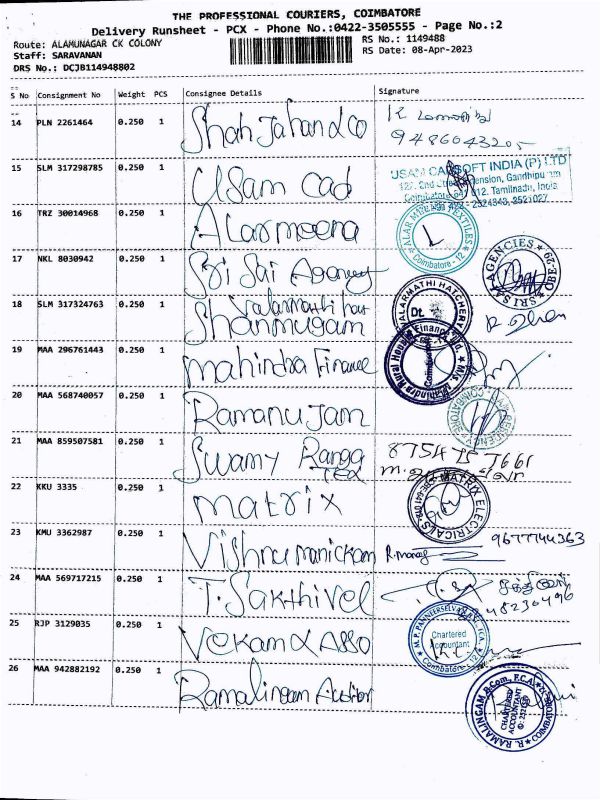 THE PROFESSIONAL COURIERS, COIMBATORE
Delivery Runsheet - PCX - Phone No.:0422-3505555 - Page No.:2
Route: ALAMUNAGAR CK COLONY
RS No.: 1149488
Staff: SARAVANAN
RS Date: 08-Apr-2023
DRS No.: DCJB114948802
S No Consignment No Weight PCS Consignee Details Signature
14 PLN 2261464 0.250 1 Shah Jahan & Co
15 SLM 317298785 0.250 1 Usam Cad
USAM CADSOFT INDIA (P) LTD
16 TRZ 30014968 0.250 1 Alarmeena
Coimbatore - 12
17 NKL 8030942 0.250 1 Sri Sai Agency
SRI SAI AGENCIES
18 SLM 317324763 0.250 1 Valarmathi hat
Shanmugam
VALARMATHI HATCHERY
Dt.
19 MAA 296761443 0.250 1 Mahindra Finance
20 MAA 568740057 0.250 1 Ramanujam
21 MAA 859507581 0.250 1 Swamy Ranga
Tex
22 KKU 3335 0.250 1 Matrix
MATRIX ELECTRICALS
23 KMU 3362987 0.250 1 Vishnu Manickam 9677744363
24 MAA 569717215 0.250 1 T. Sakthivel
25 RJP 3129035 0.250 1 Vekam & Asso
Chartered
Accountant
26 MAA 942882192 0.250 1 Ramalingam Auditor
R. RAMALINGAM B.Com., F.C.A.
CHARTERED
ACCOUNTANT